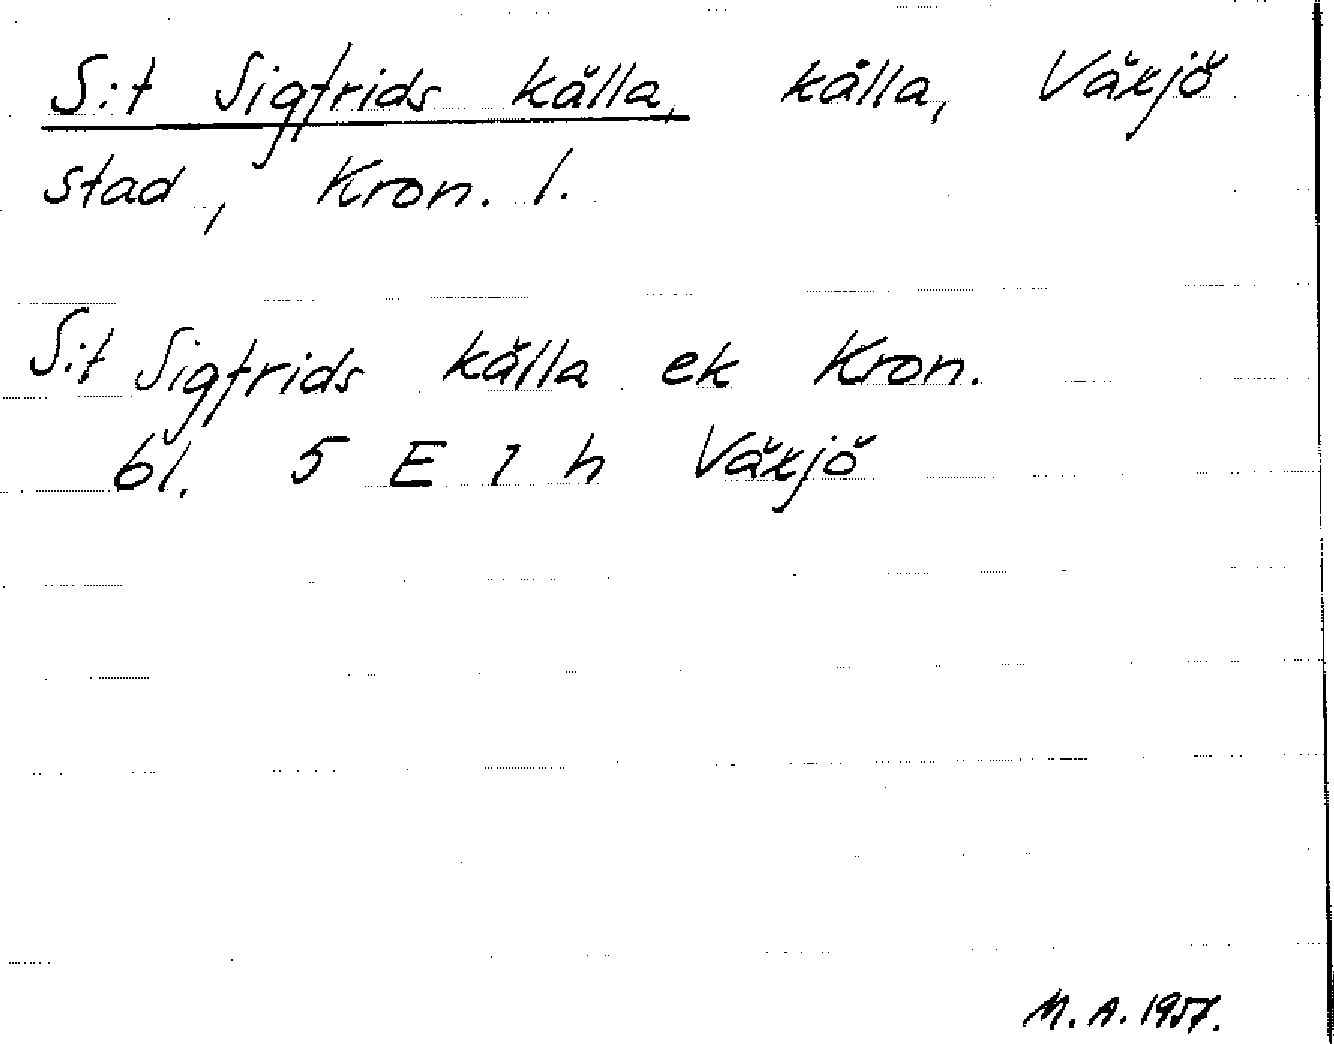 S:t Sigfrids källa, källa, Växjö
stad, Kron. l.
S:t Sigfrids källa ek Kron.
bl. 5 E 1 h Växjö
M. A. 1957.